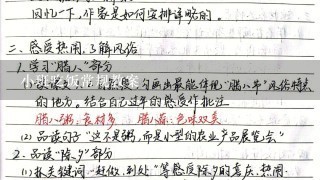 回忆一下,作家是如何安排详略的。
二、感受热闹,了解风俗
1.学习“腊八”部分
勾画出最能体现“腊八节”风俗特点
的地方。结合自己过年的感受作批注
腊八粥:食材多 腊八蒜:色味双美
(2)品读句子“这不是粥,而是小型的农业产品展览会”
2.品读“除夕”部分
(1)抓关键词“赶做、到处”等感受除夕的喜庆、热闹。